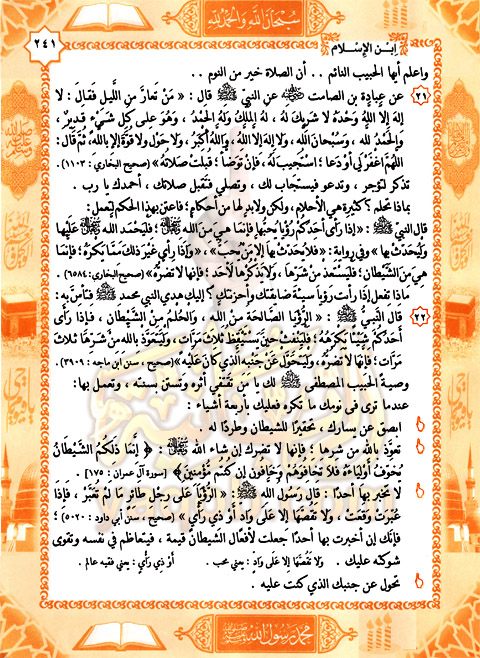 سبحان الله والحمد لله
٢٤١
إبن الإسلام
واعلم أيها الحبيب النائم .. أن الصلاة خير من النوم ..
٢١ عن عبادة بن الصامت عن النبي ﷺ قال : « مَنْ تَعَارَّ مِنَ اللَّيلِ فَقَالَ : لَا
إِلَهَ إِلَّا اللهُ وَحْدَهُ لَا شَرِيكَ لَهُ ، لَهُ المُلْكُ وَلَهُ الحَمْدُ ، وَهُوَ عَلَى كُلِّ شَيْءٍ قَدِيرٌ ،
وَالحَمْدُ لله ، وَسُبْحَانَ الله ، وَلَا إِلَهَ إِلَّا اللهُ ، وَاللهُ أَكْبَرُ ، وَلَا حَوْلَ وَلَا قُوَّةَ إِلَّا بِالله ، ثُمَّ قَالَ :
اللَّهُمَّ اغْفِرْ لِي أَوْ دَعَا ؛ اسْتُجِيبَ لَهُ ، فَإِنْ تَوَضَّأَ ؛ قُبِلَتْ صَلَاتُهُ » (صحيح البخاري : ١١٠٣) .
تذكر لتؤجر ، وتدعو فيستجاب لك ، وتصلي فتقبل صلاتك ، أحمدك يا رب .
بماذا تحلم ؟ كثيرة هي الأحلام ، ولكن ولابد لها من أحكام ؛ فاعتن بهذا الحكم لتعمل :
قال النبي ﷺ : « إِذَا رَأَى أَحَدُكُمْ رُؤْيَا يُحِبُّهَا فَإِنَّمَا هِيَ مِنَ الله ؛ فَلْيَحْمَدِ اللهَ عَلَيْهَا
وَلْيُحَدِّثْ بِهَا » وفي رواية : « فَلَا يُحَدِّثْ بِهَا إِلَّا مَنْ يُحِبُّ » ، « وَإِذَا رَأَى غَيْرَ ذَلِكَ مِمَّا يَكْرَهُ ؛ فَإِنَّمَا
هِيَ مِنَ الشَّيْطَانِ ؛ فَلْيَسْتَعِذْ مِنْ شَرِّهَا ، وَلَا يَذْكُرْهَا لِأَحَدٍ ؛ فَإِنَّهَا لَا تَضُرُّهُ » (صحيح البخاري : ٦٥٨٤) .
ماذا تفعل إذا رأيت رؤيا سيئة ضايقتك وأحزنتك ؟ إليك هدي النبي محمد ﷺ فتأمر به :
٢٢ قَالَ النَّبِيُّ ﷺ : « الرُّؤْيَا الصَّالِحَةُ مِنَ الله ، وَالحُلْمُ مِنَ الشَّيْطَانِ ، فَإِذَا رَأَى
أَحَدُكُمْ شَيْئًا يَكْرَهُهُ ؛ فَلْيَنْفِثْ حِينَ يَسْتَيْقِظُ ثَلَاثَ مَرَّاتٍ ، وَلْيَتَعَوَّذْ بِالله مِنْ شَرِّهَا ثَلَاثَ
مَرَّاتٍ ؛ فَإِنَّهَا لَا تَضُرُّهُ ، وَلْيَتَحَوَّلْ عَنْ جَنْبِهِ الَّذِي كَانَ عَلَيْهِ » (صحيح ، سنن ابن ماجه : ٣٩٠٩) .
وصية الحبيب المصطفى ﷺ لك يا من تقتفي أثره وتستن بسنته ، وتعمل بها :
عندما ترى في نومك ما تكره فعليك بأربعة أشياء :
ابصق عن يسارك ، تحقيرًا للشيطان وطردًا له .
تعوَّذ بالله من شرها ؛ فإنها لا تضرك إن شاء الله : ﴿ إِنَّمَا ذَلِكُمُ الشَّيْطَانُ
يُخَوِّفُ أَوْلِيَاءَهُ فَلَا تَخَافُوهُمْ وَخَافُونِ إِنْ كُنْتُمْ مُؤْمِنِينَ ﴾ [سورة آل عمران : ١٧٥] .
لا تخبر بها أحدًا : قَالَ رَسُولُ الله ﷺ : « الرُّؤْيَا عَلَى رِجْلِ طَائِرٍ مَا لَمْ تُعَبَّرْ ، فَإِذَا
عُبِّرَتْ وَقَعَتْ ، وَلَا تَقُصَّهَا إِلَّا عَلَى وَادٍّ أَوْ ذِي رَأْيٍ » (صحيح ، سنن أبي داود : ٥٠٢٠) ؛
فإنك إن أخبرت بها أحدًا جعلت لأفعال الشيطان قيمة ، فيتعاظم في نفسه وتقوى
شوكته عليك . وَلَا تَقُصَّهَا إِلَّا عَلَى وَادٍّ : يعني محب . أَوْ ذِي رَأْيٍ : يعني فقيه عالم .
تحول عن جنبك الذي كنت عليه .
محمد رسول الله